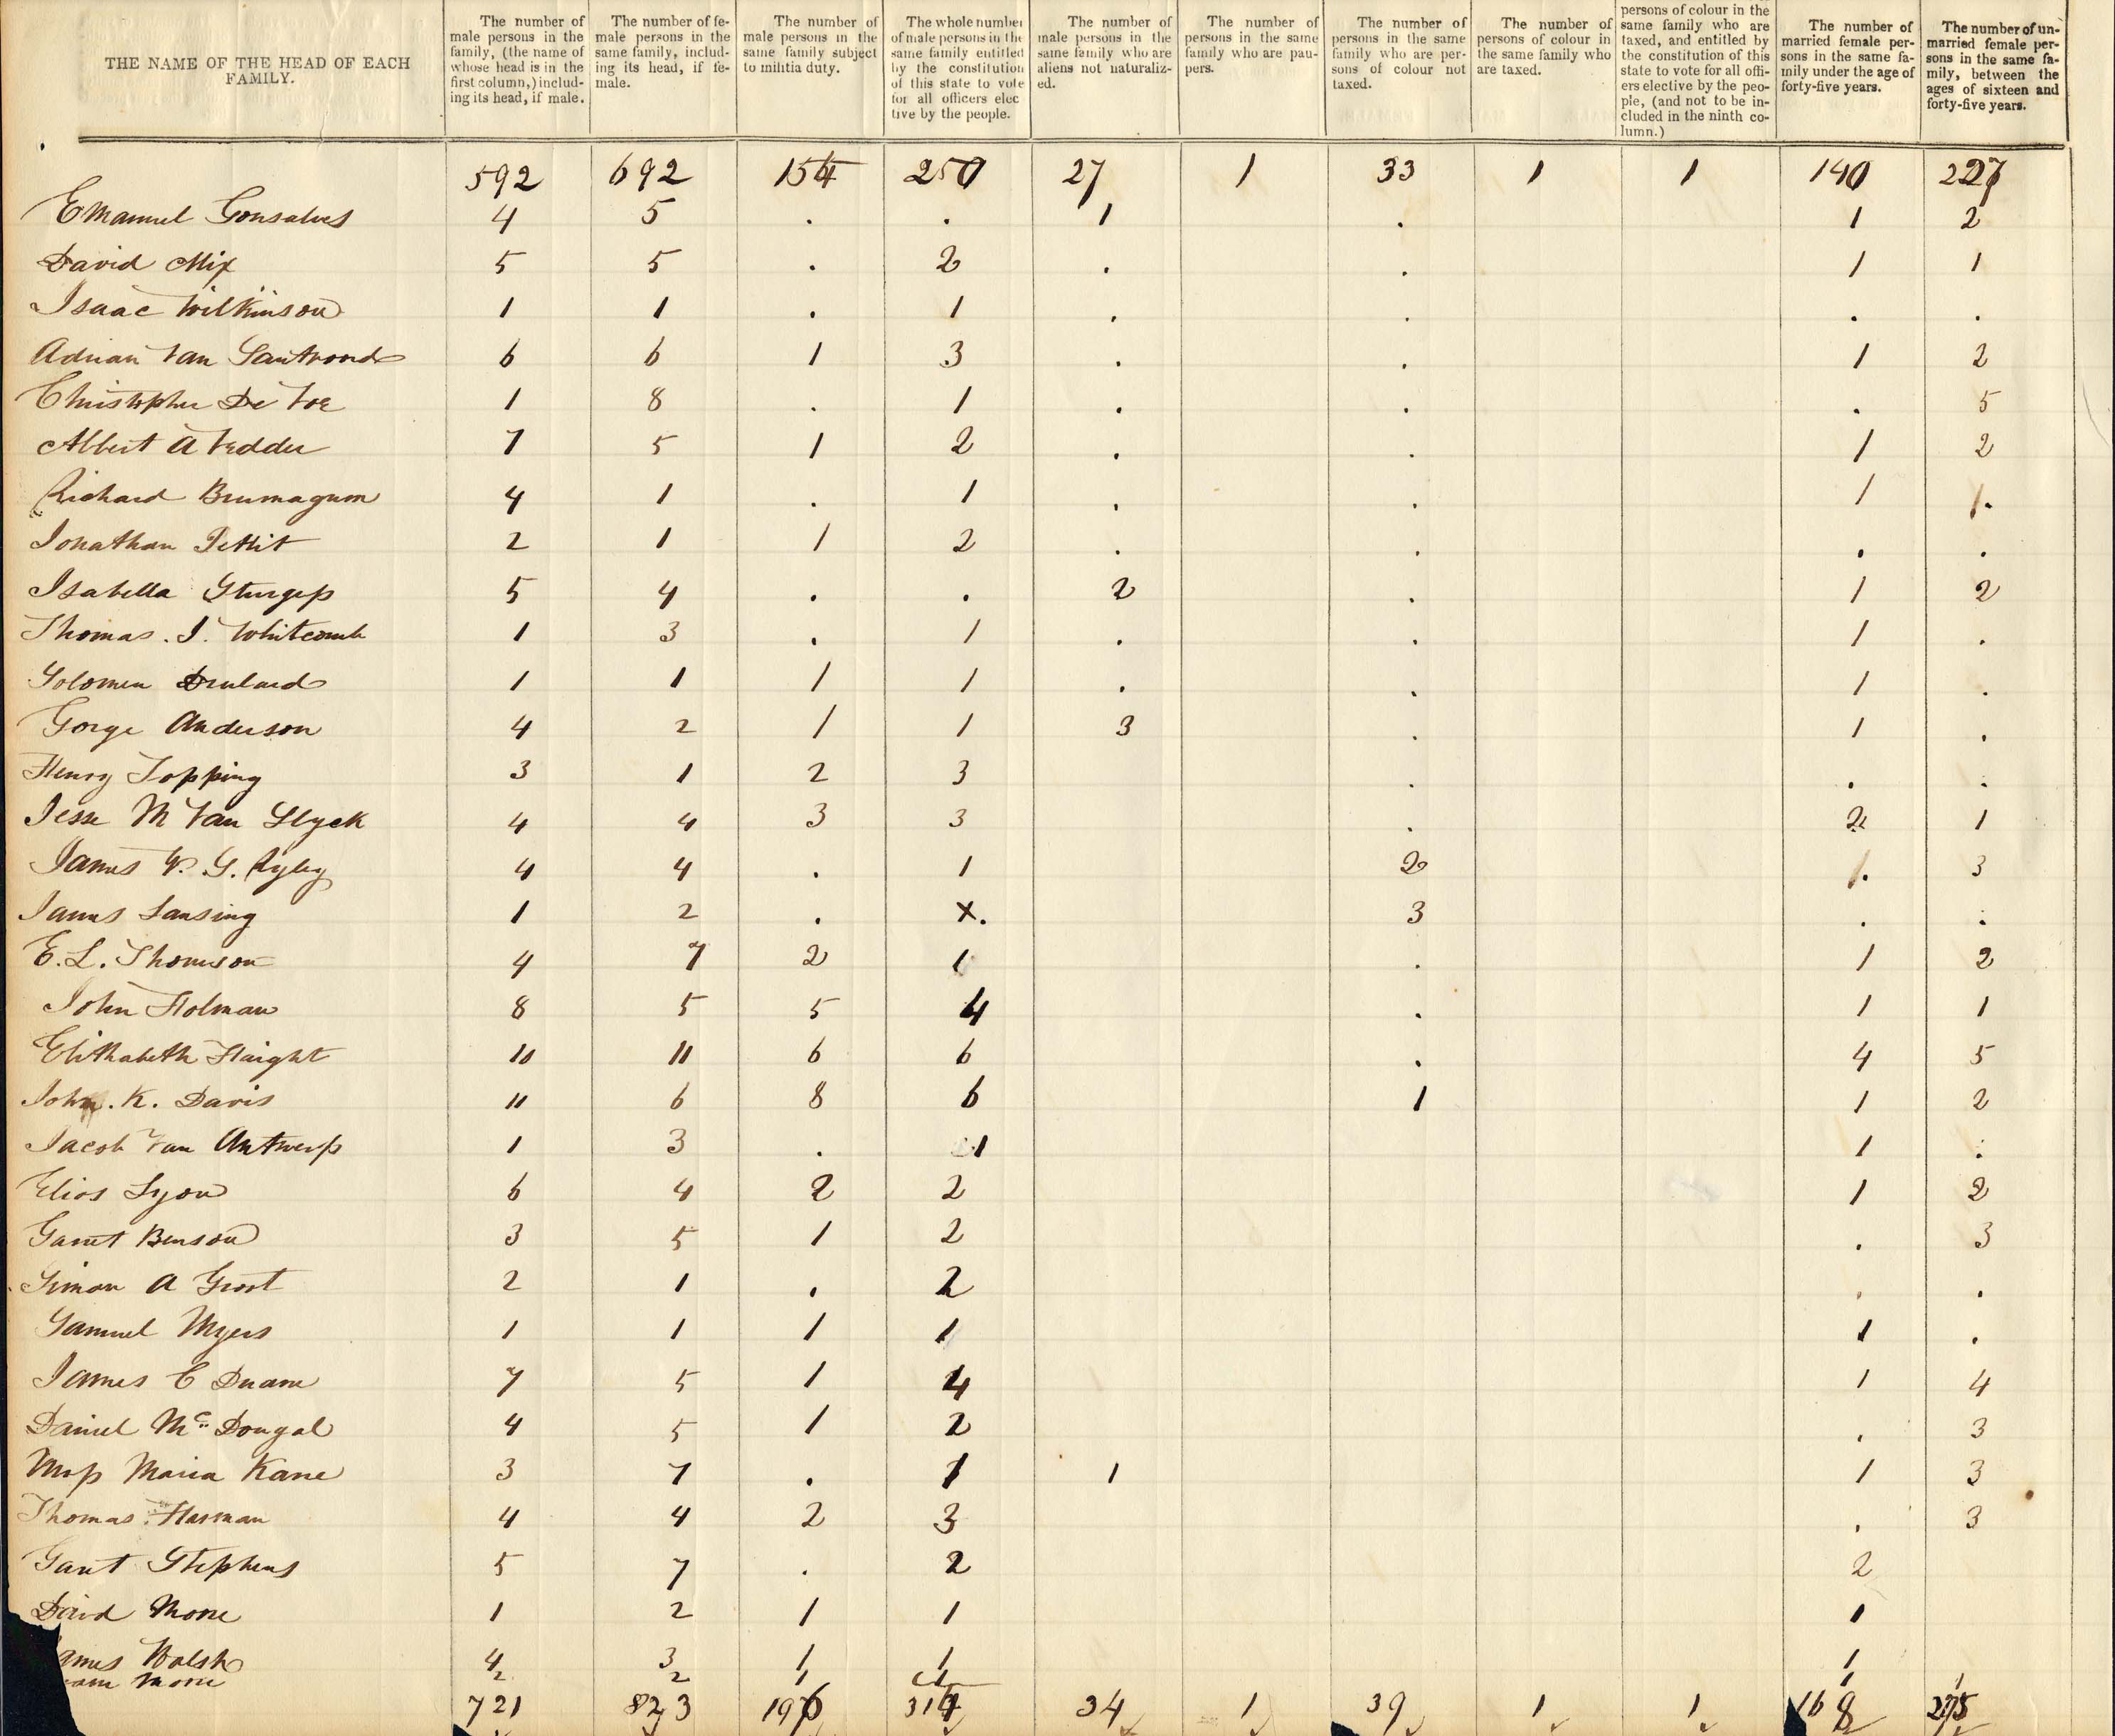 THE NAME OF THE HEAD OF EACH FAMILY.
The number of male persons in the family, (the name of whose head is in the first column,) including its head, if male.
The number of female persons in the same family, including its head, if female.
The number of male persons in the same family subject to militia duty.
The whole number of male persons in the same family entitled by the constitution of this state to vote for all officers elective by the people.
The number of male persons in the same family who are aliens not naturalized.
The number of persons in the same family who are paupers.
The number of persons in the same family who are persons of colour not taxed.
The number of persons of colour in the same family who are taxed.
persons of colour in the same family who are taxed, and entitled by the constitution of this state to vote for all officers elective by the people, (and not to be included in the ninth column.)
The number of married female persons in the same family under the age of forty-five years.
The number of unmarried female persons in the same family, between the ages of sixteen and forty-five years.
592 692 154 250 27 1 33 1 1 140 227
Emanuel Gonsalves 4 5 . . 1 . 1 2
David Mix 5 5 . 2 . . 1 1
Isaac Wilkinson 1 1 . 1 . . . .
Adrian Van Santvoord 6 6 1 3 . . 1 2
Christopher De Voe 1 8 . 1 . . . 5
Albert A Vedder 7 5 1 2 . . 1 2
Richard Brumagum 4 1 . 1 . . 1 1.
Jonathan Pettit 2 1 1 2 . . . .
Isabella Sturgess 5 4 . . 2 . 1 2
Thomas . J. Whitcomb 1 3 . 1 . . 1 .
Solomon 1 1 1 1 . . 1 .
Gorge Anderson 4 2 1 1 3 . 1 .
Henry Topping 3 1 2 3 . . .
Jesse M Van Slyck 4 4 3 3 . 2 1
James V. S. Ryley 4 4 . 1 2 1. 3
James Lansing 1 2 . x. 3 . .
E. L. Thomson 4 7 2 1 . 1 2
John Holman 8 5 5 4 . 1 1
Elithabeth Haight 10 11 6 6 . 4 5
John . K. Davis 11 6 8 6 1 1 2
Jacob Van Antwerp 1 3 . 1 1 .
Elios Lyon 6 4 2 2 1 2
Garret Benson 3 5 1 2 . 3
Simon A Groot 2 1 . 2 . .
Samuel Myers 1 1 1 1 1 .
James C Duane 7 5 1 4 1 4
Daniel Mc Dougal 4 5 1 2 . 3
Miss Maria Kane 3 7 . 1 1 1 3
Thomas Harman 4 4 2 3 . 3
Garret Stephens 5 7 . 2 2
David More 1 2 1 1 1
ames Walsh 4 3 1 1 1
More 2 2 1 1 1 1
721 823 196 314 34 1 39 1 1 168 275